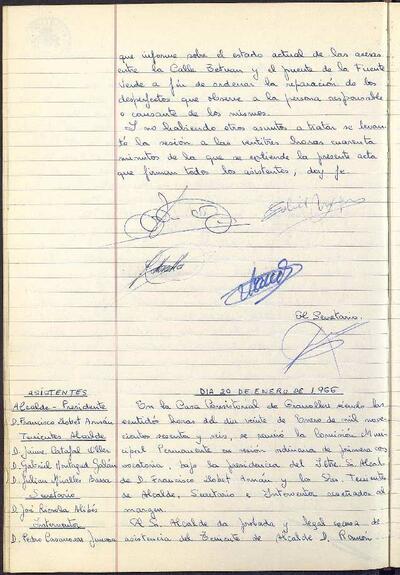 que informe sobre el estado actual de las aceras
entre la Calle Tetuan y el puente de la Fuente
Verde a fin de ordenar la reparación de los
desperfectos que observe a la persona responsable
o causante de los mismos.
Y no habiendo otros asuntos a tratar se levan-
tó la sesión a las ventitres horas cuarenta
minutos de la que se extiende la presente acta
que firman todos los asistentes, doy fe.
El Secretario.
ASISTENTES
Alcalde-Presidente
D. Francisco Llobet Arnán
Tenientes Alcalde
D. Jaime
D. Gabriel
D. Julian
Secretario
D. José
Interventor
D. Pedro Casanovas
DIA 20 DE ENERO DE 1966
En la Casa Consistorial de Granollers siendo las
ventidós horas del día veinte de Enero de mil nove-
cientos sesenta y seis, se reunió la Comisión Muni-
cipal Permanente en sesión ordinaria de primera con-
vocatoria, bajo la presidencia del Iltre. Sr. Alcal-
de D. Francisco Llobet Arnán y los Sres. Tenientes
de Alcalde, Secretario e Interventor reseñados al
margen.
El Sr. Alcalde da probada y legal excusa de
asistencia del Teniente de Alcalde D. Ramón